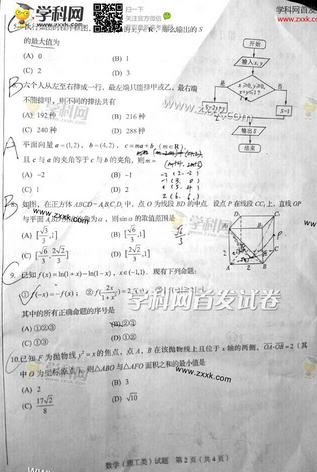 学科网
zxxk.com
扫一扫
关注官方微信
www.zxxk.com
的最大值为
(A) 0 (B) 1
(C) 2 (D) 3
开始
输入x,y
是 否
S=1
输出S
结束
六个人从左至右排成一行，最左端只能排甲或乙，最右端
不能排甲，则不同的排法共有
(A) 192种 (B) 216种
(C) 240种 (D) 288种
平面向量a=(1,2)，b=(4,2)，c=ma+b (m∈R)，
且c与a的夹角等于c与b的夹角，则m=
(A) -2 (B) -1
(C) 1 (D) 2
如图，在正方体ABCD-A₁B₁C₁D₁中，点O为线段BD的中点，设点P在线段CC₁上，直线OP
为α，则sinα的取值范围是
(A) [√3/3,1] (B) [√6/3,1]
(C) [√6/3,2√2/3] (D) [2√2/3,1]
9. 已知f(x)=ln(1+x)-ln(1-x)，x∈(-1,1)．现有下列命题：
①f(-x)=-f(x)；②f(2x/(1+x²))=
学科网首发试卷
其中的所有正确命题的序号是
(A) ①②③ (B) ②③
(C) ①③ (D) ①②
10. 已知F为抛物线y²=x的焦点，点A，B在该抛物线上且位于x轴的两侧，OA·OB=2（其
中O为坐标原点），则△ABO与△AFO面积之和的最小值是
(A) 2 (B) 3
(C) 17√2/8 (D) √10
www.zxxk.com
数学（理工类）试题 第2页（共4页）